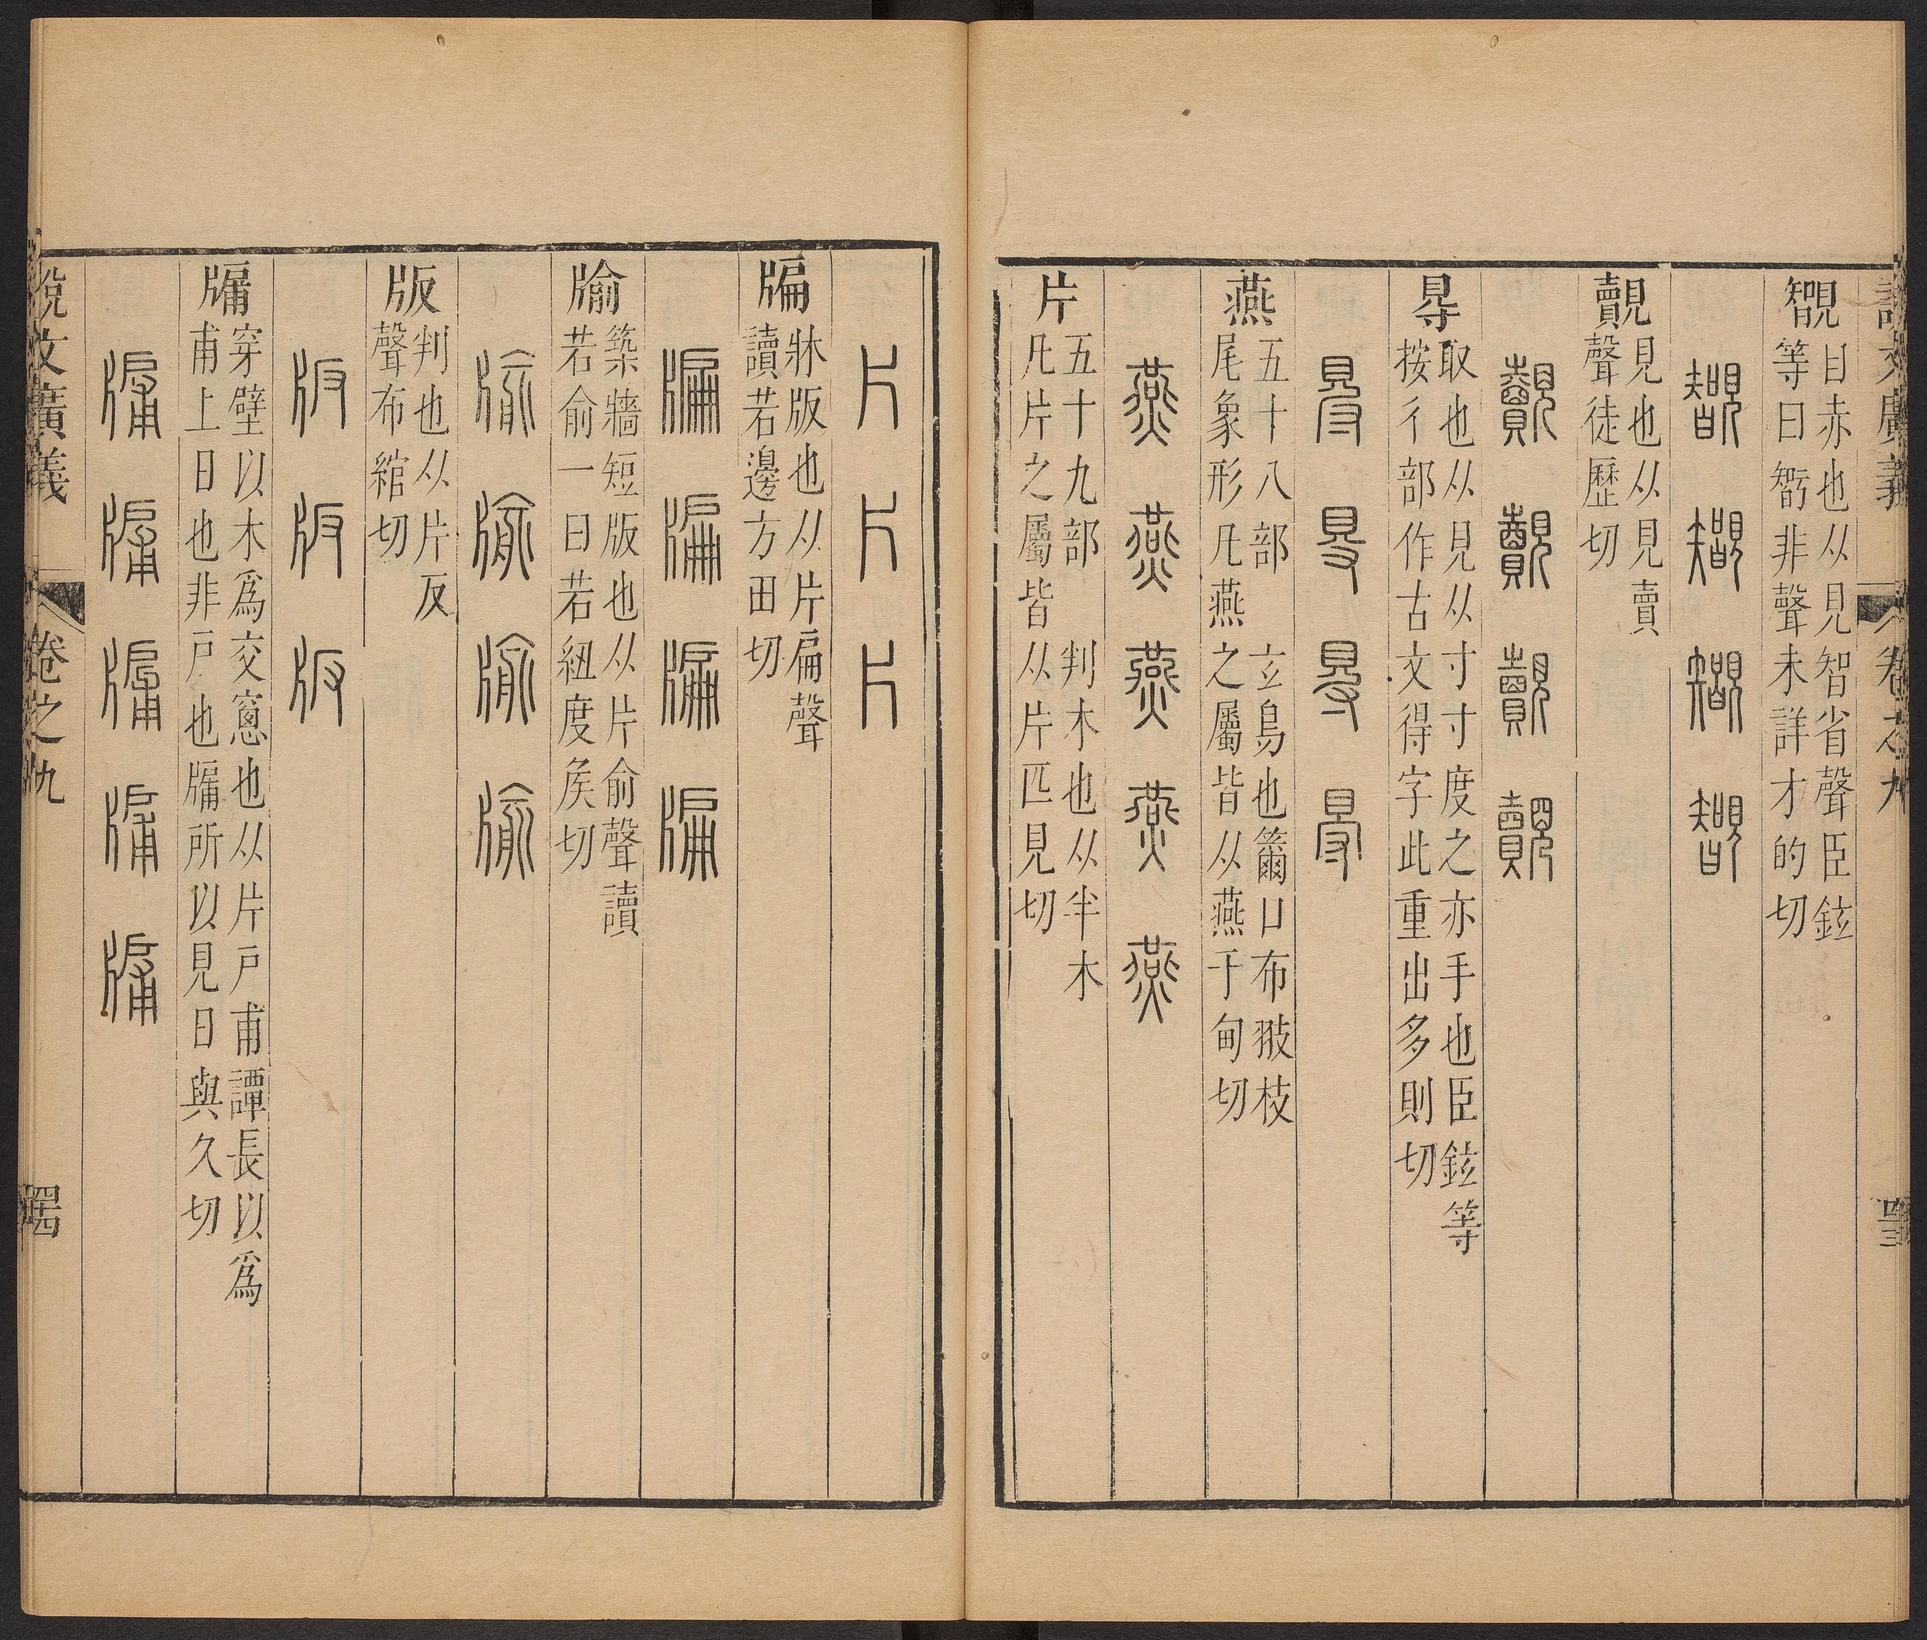 說文廣義 卷之九 四三
覱目赤也从見智省聲臣鉉
等曰䂓非聲未詳才的切
覿見也从見賣
聲徒歷切
㝵取也从見从寸寸度之亦手也臣鉉等
按彳部作古文得字此重出多則切
燕五十八部 玄鳥也籋口布翄枝
尾象形凡燕之屬皆从燕于甸切
燕燕燕燕燕
片五十九部 判木也从半木
凡片之屬皆从片匹見切
片片片
牑牀版也从片扁聲
讀若邊方田切
牑牑牑牑
牏築牆短版也从片俞聲讀
若俞一曰若紐度矦切
牏牏牏牏
版判也从片反
聲布綰切
版版版
牖穿壁以木爲交窻也从片戶甫譚長以爲
甫上日也非戶也牖所以見日與久切
牖牖牖牖牖
說文廣義 卷之九 四四